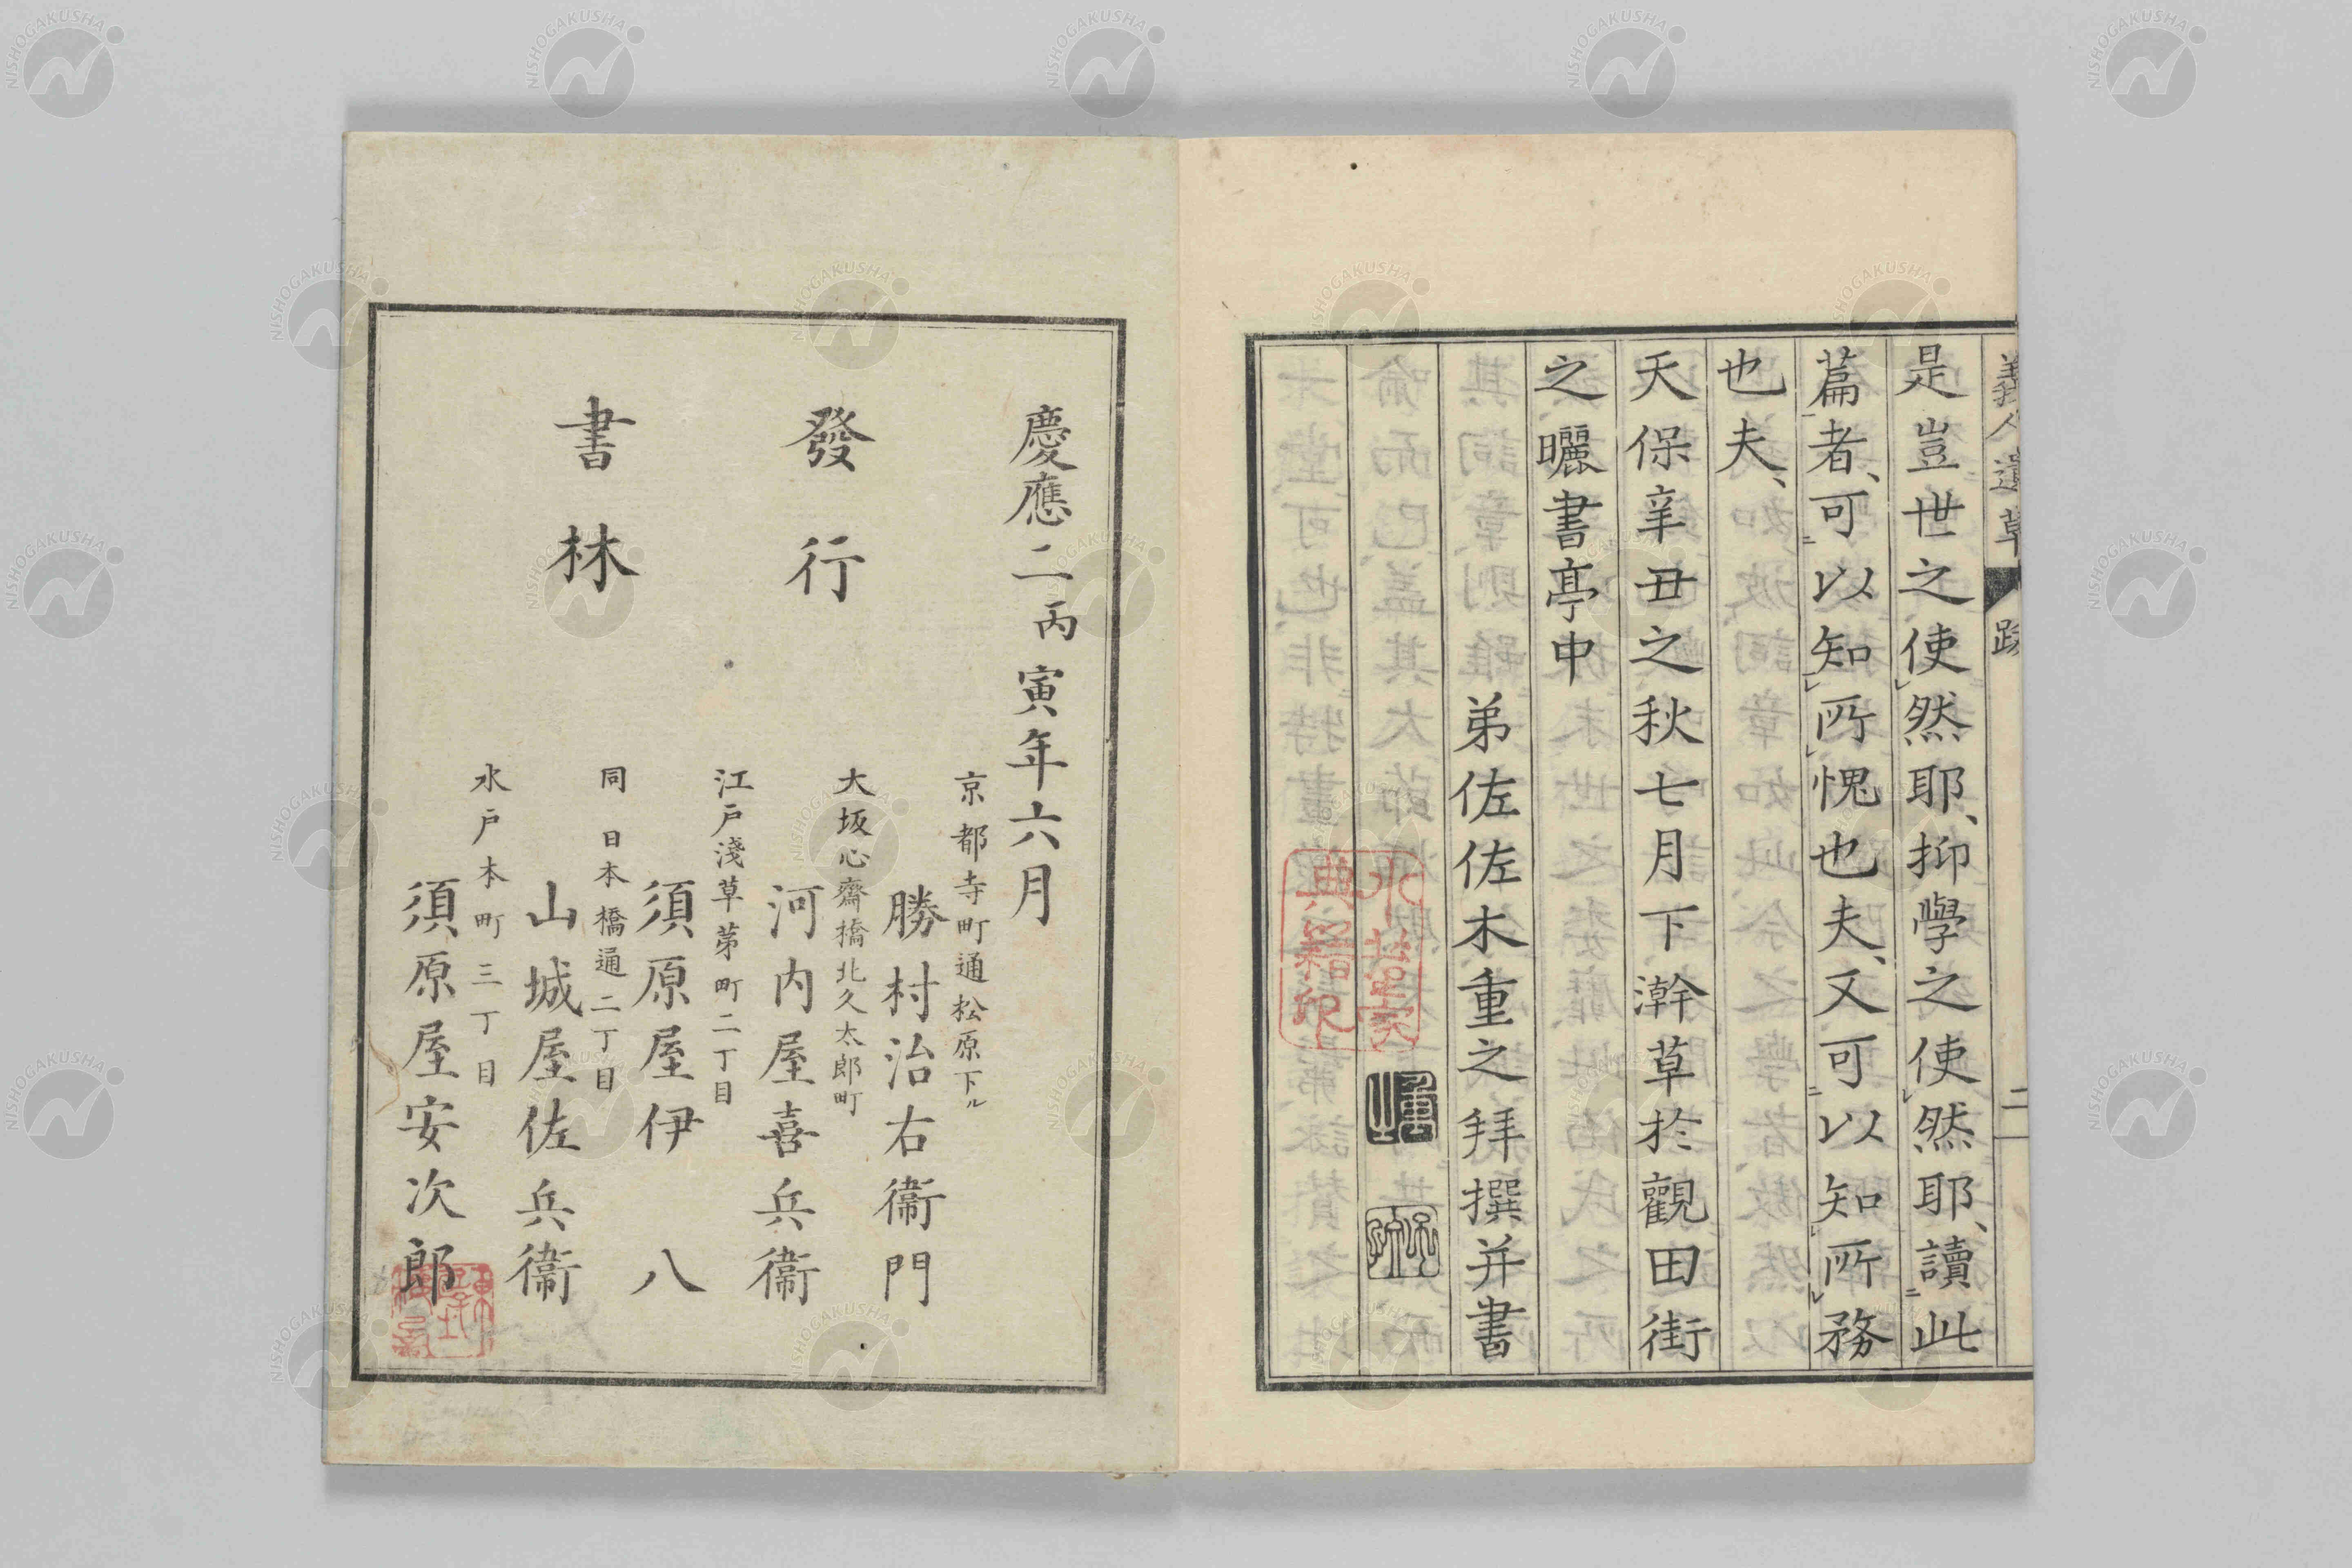 義人遺草 跋 二
是豈世之使然耶、抑學之使然耶、讀此
篇者、可以知所愧也夫、又可以知所務
也夫、
天保辛丑之秋七月下澣草於觀田街
之曬書亭中
弟佐佐木重之拜撰并書
典籍印
慶應二丙寅年六月
發行
書林
京都寺町通松原下ル
勝村治右衞門
大坂心齋橋北久太郎町
河内屋喜兵衞
江戸淺草茅町二丁目
須原屋伊八
同日本橋通二丁目
山城屋佐兵衞
水戸本町三丁目
須原屋安次郎
NISHOGAKUSHA